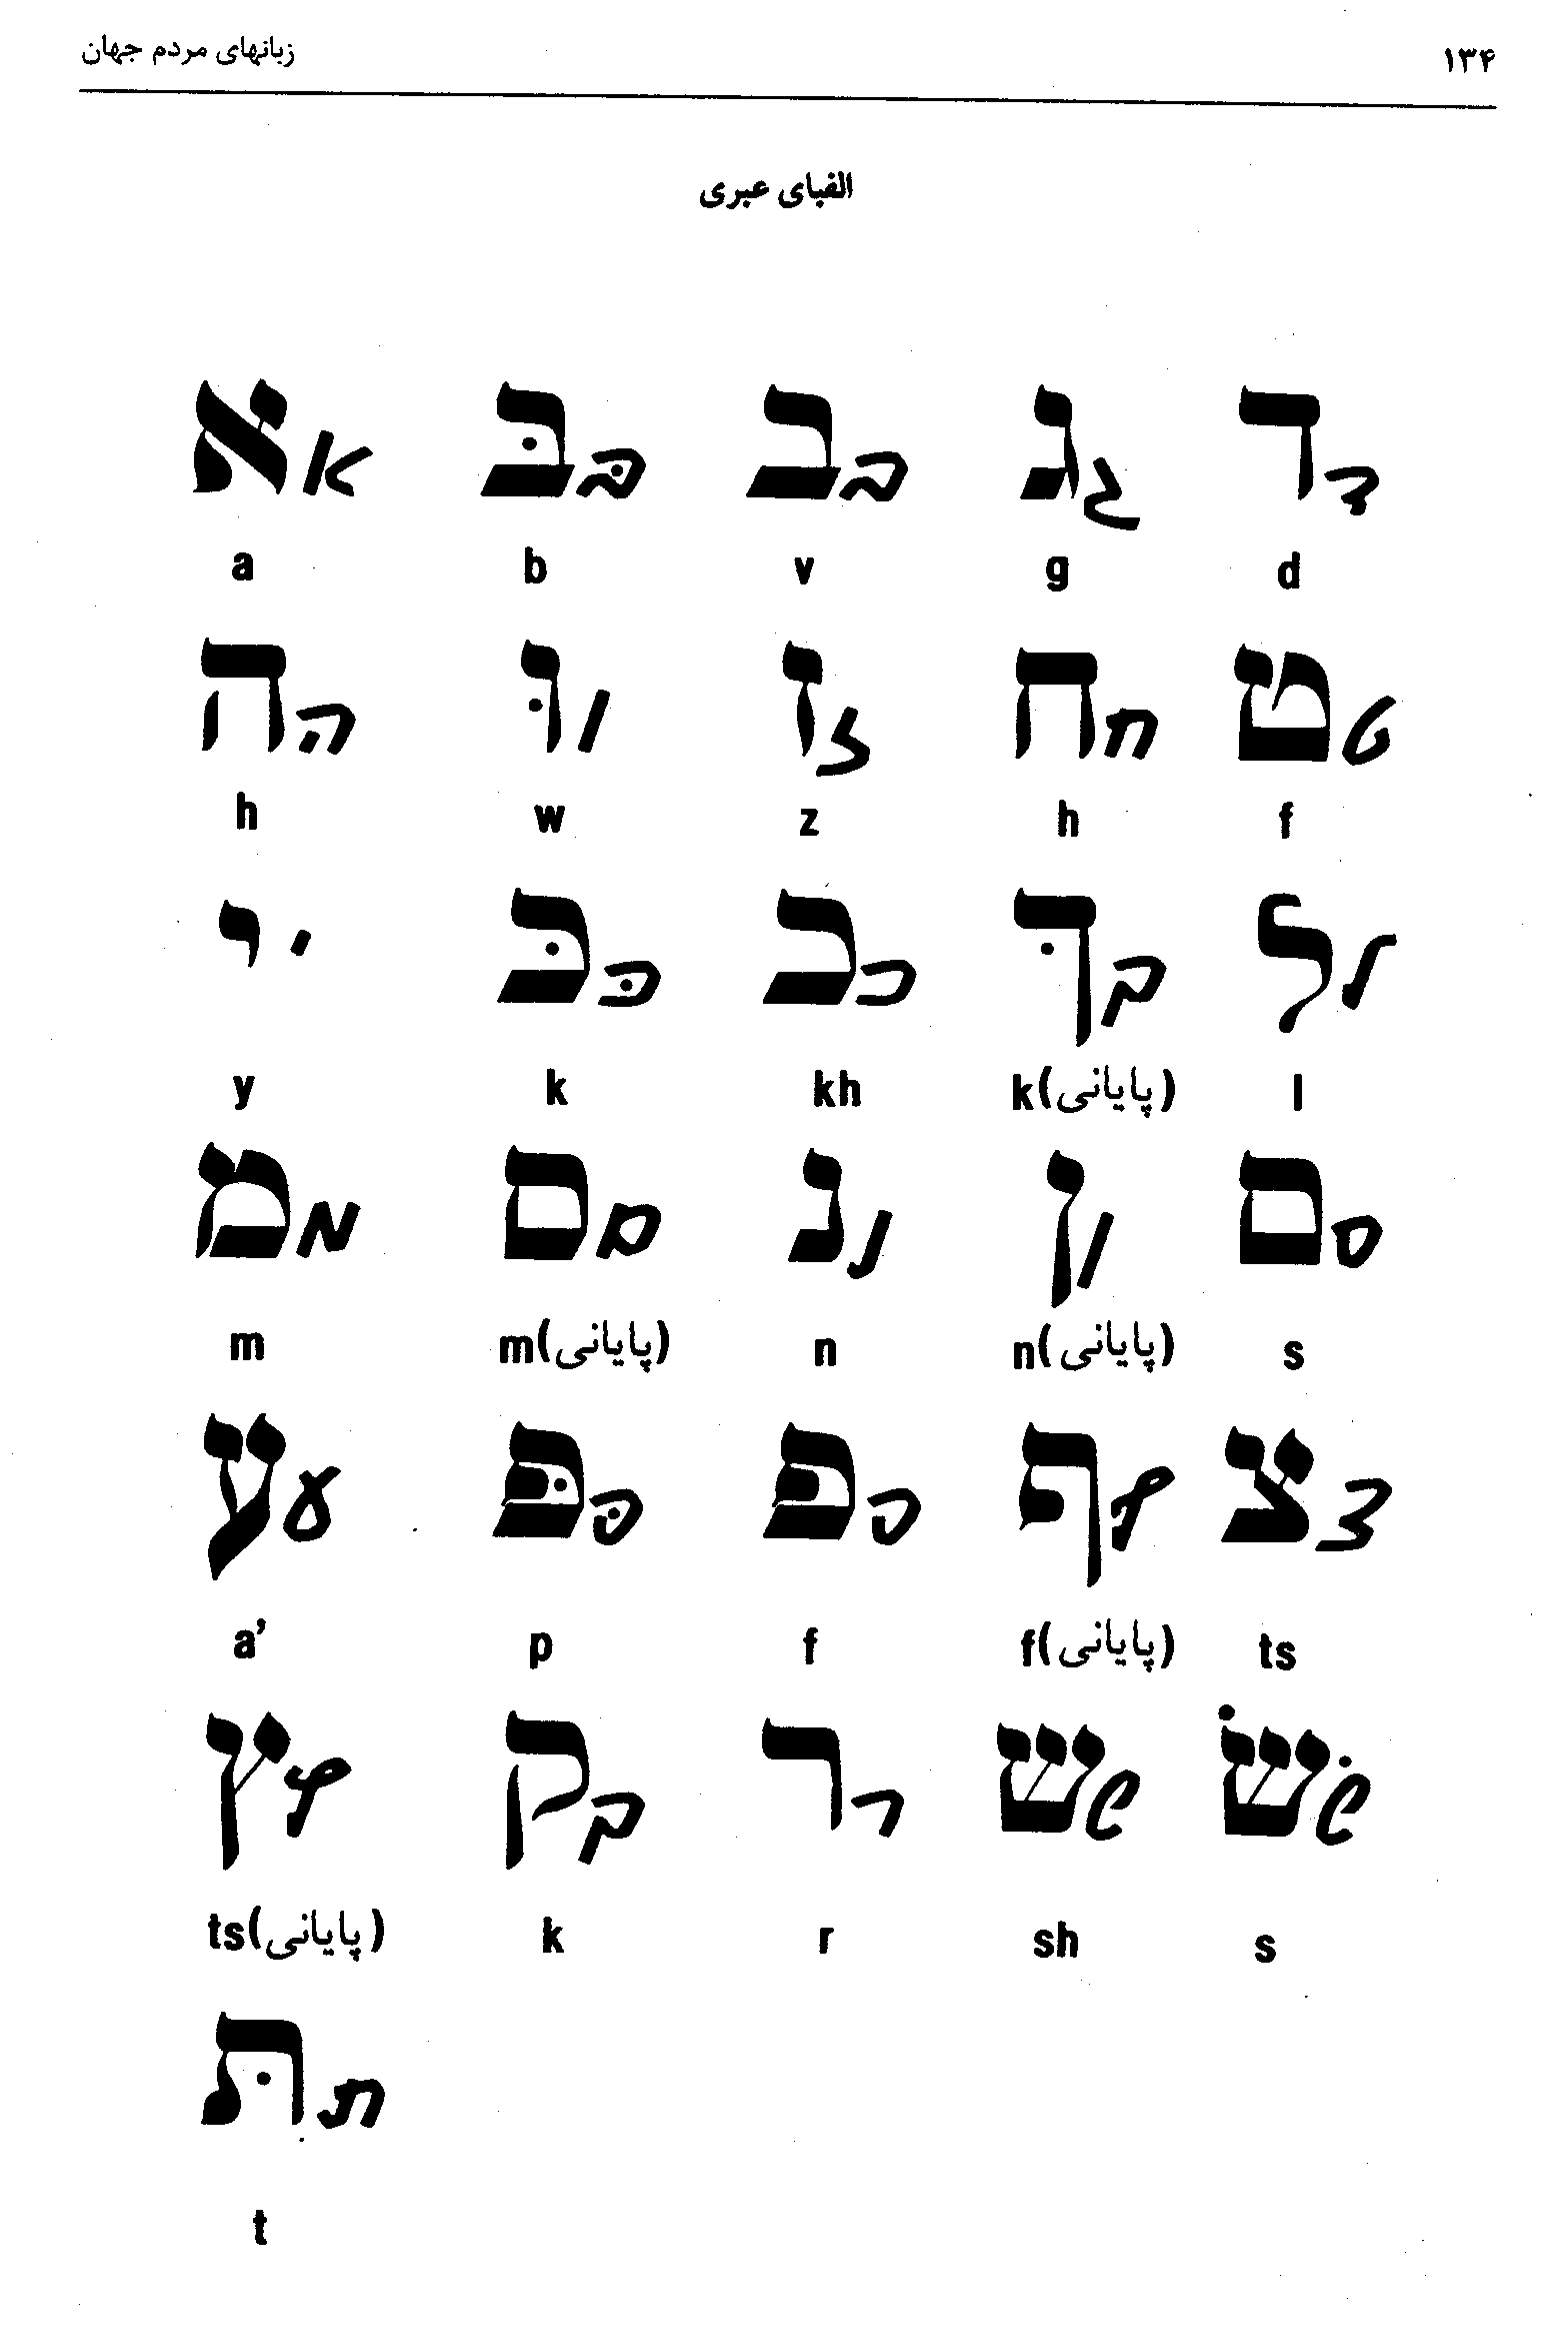 زبانهای مردم جهان ۱۳۴
الفبای عبری
א א בּ בּ ב ב ג ג ד ד
a b v g d
ה ה וּ ו ז ז ח ח ט ט
h w z h f
י י כּ כּ כ כ ךּ ק ל ל
y k kh k(پایانی) l
מ מ ם ם נ נ ן ן ס ס
m m(پایانی) n n(پایانی) s
ע ע פּ פּ פ פ ף ף צ צ
a’ p f f(پایانی) ts
ץ ץ ק ק ר ר ש ש שׂ שׁ
ts(پایانی) k r sh s
תּ ת
t